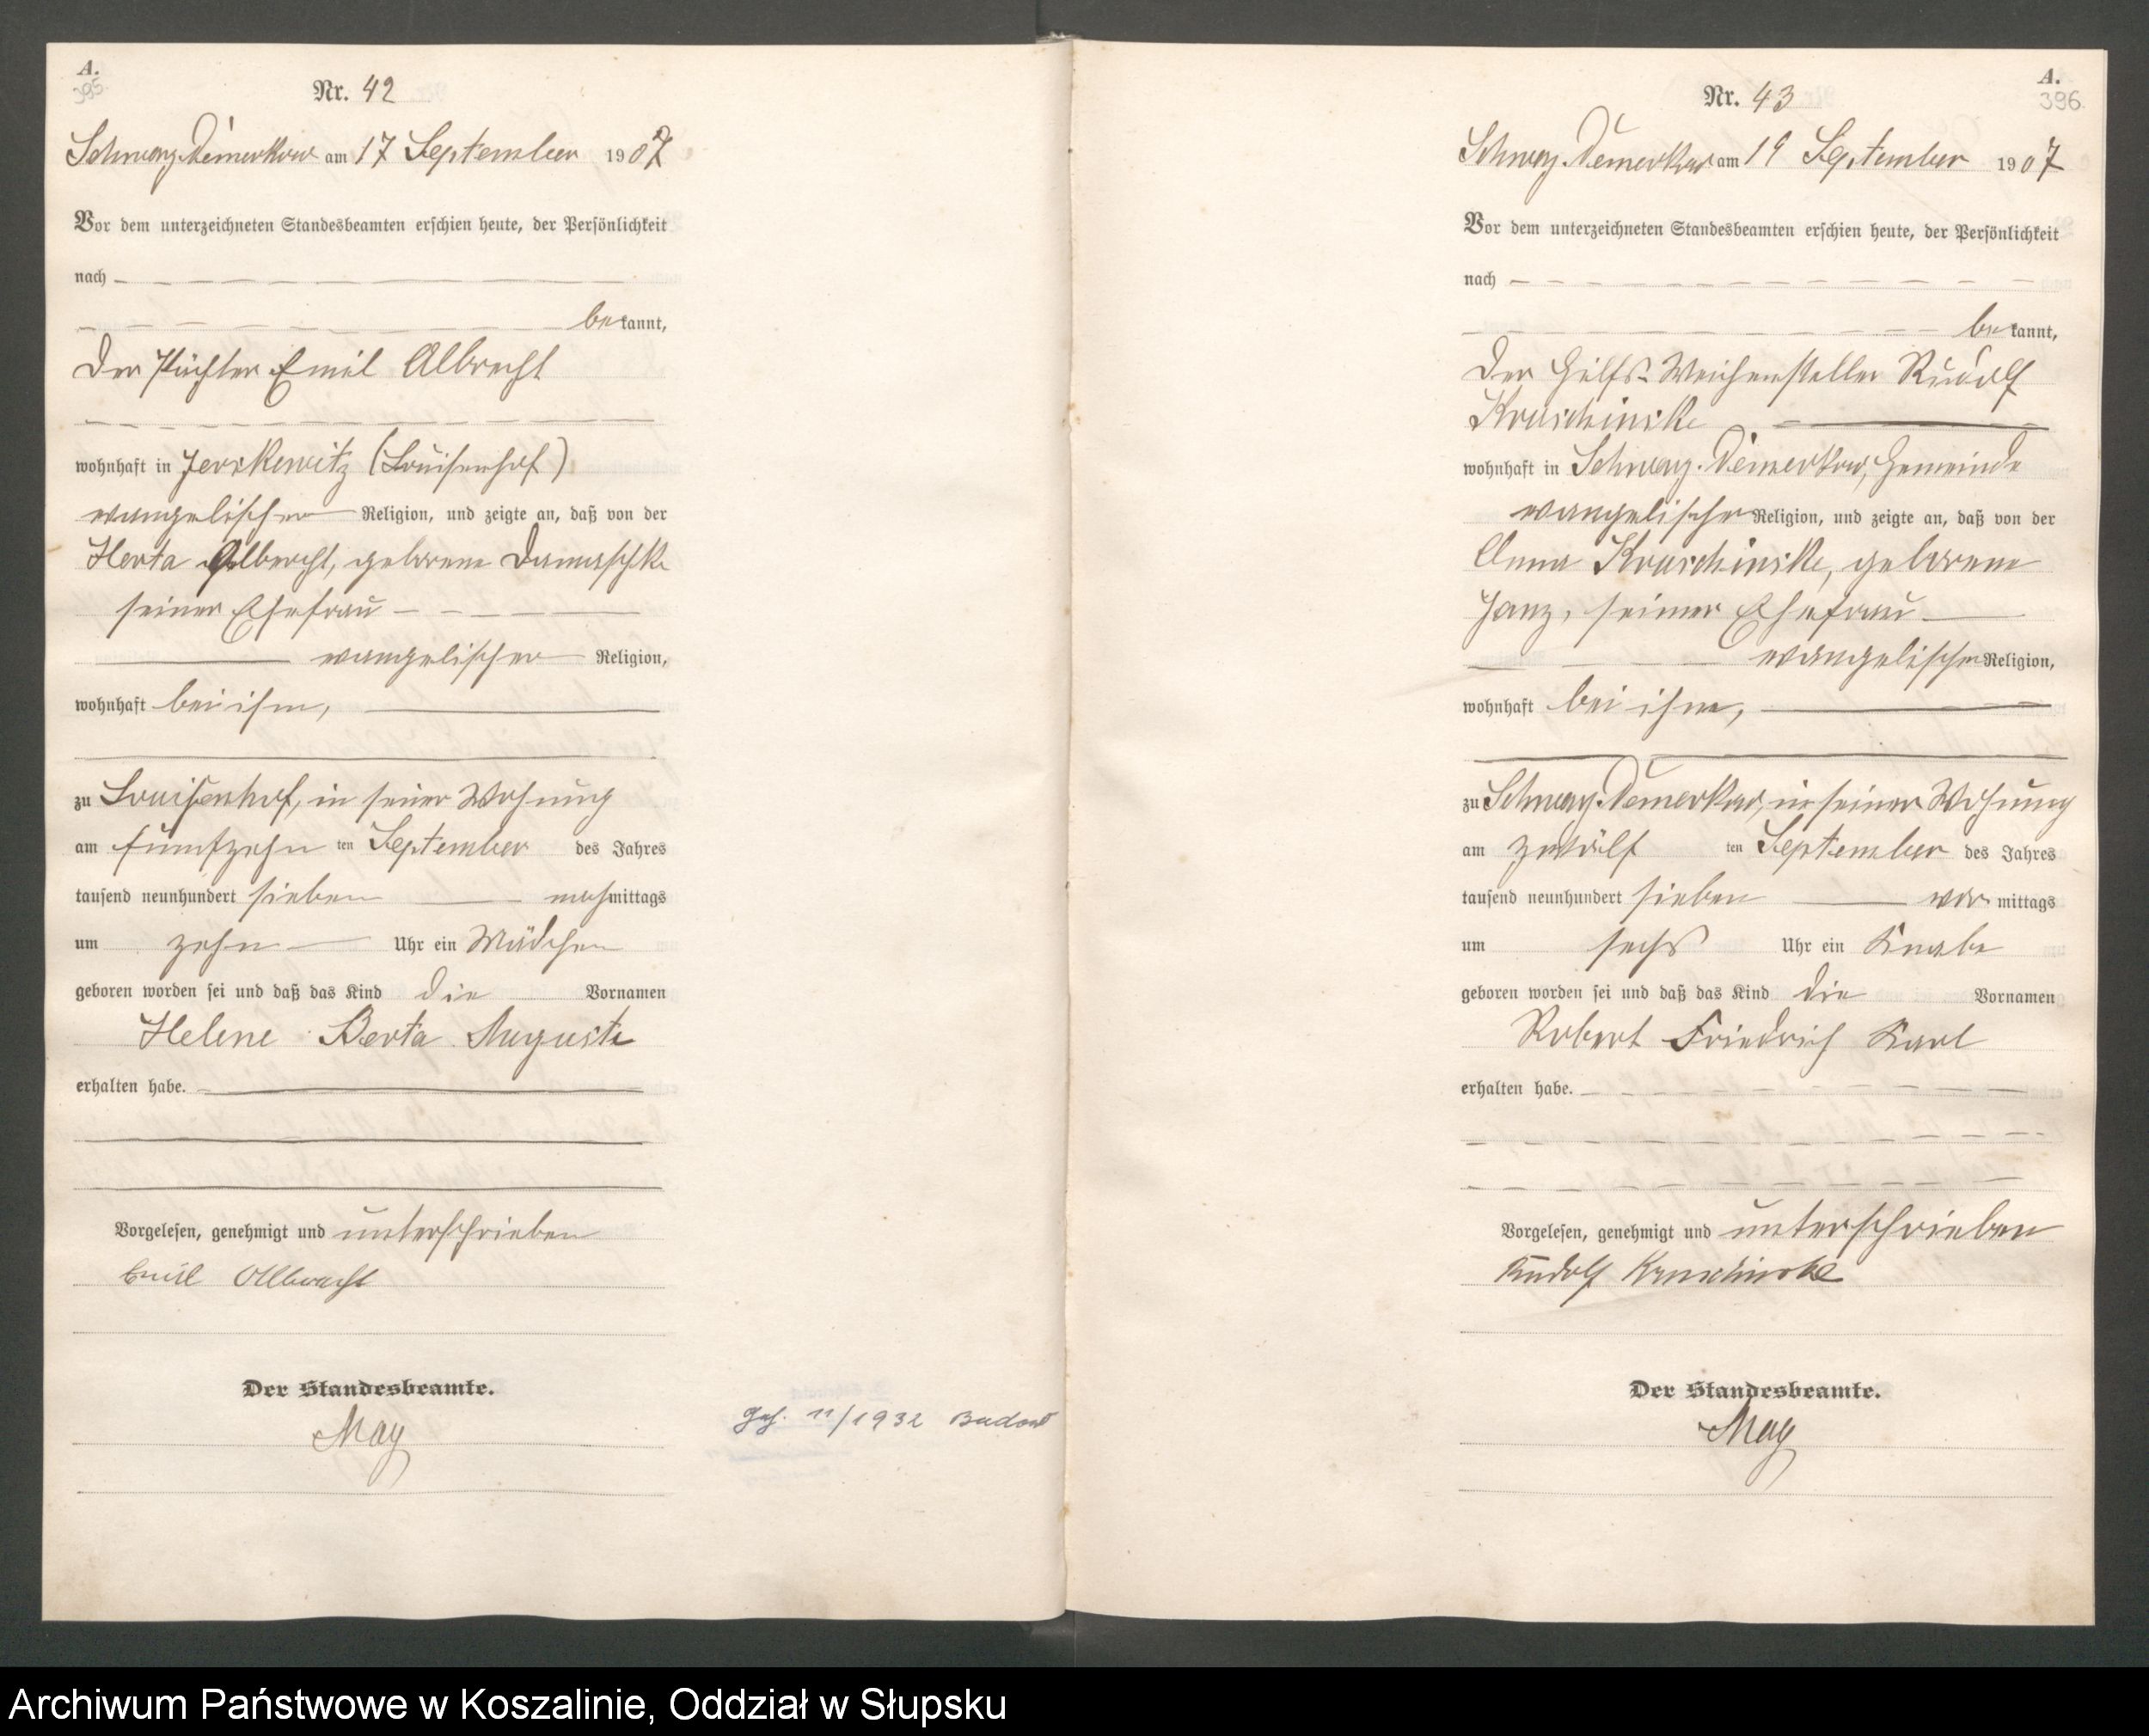 A.
395
Nr. 42
Schwarz Dämerkow am 17 September 1907
Vor dem unterzeichneten Standesbeamten erschien heute, der Persönlichkeit
nach
bekannt,
Der Pächter Emil Albrecht
wohnhaft in Jerskewitz (Louisenhof)
evangelischer Religion, und zeigte an, daß von der
Herta Albrecht, geborene Damaschke
seiner Ehefrau
evangelischer Religion,
wohnhaft bei ihm,
zu Louisenhof, in seiner Wohnung
am fünfzehn ten September des Jahres
tausend neunhundert sieben nachmittags
um zehn Uhr ein Mädchen
geboren worden sei und daß das Kind die Vornamen
Helene Berta Auguste
erhalten habe.
Vorgelesen, genehmigt und unterschrieben
Emil Albrecht
Der Standesbeamte.
May
Geh. 11/1932 Budow
A.
396
Nr. 43
Schwarz Dämerkow am 19 September 1907
Vor dem unterzeichneten Standesbeamten erschien heute, der Persönlichkeit
nach
bekannt,
Der Hülfs-Weichensteller Rudolf
Kruschinske
wohnhaft in Schwarz Dämerkow, Gemeinde
evangelischer Religion, und zeigte an, daß von der
Anna Kruschinske, geborene
Janz, seiner Ehefrau
evangelischen Religion,
wohnhaft bei ihm,
zu Schwarz Dämerkow, in seiner Wohnung
am zwölf ten September des Jahres
tausend neunhundert sieben vor mittags
um sechs Uhr ein Knabe
geboren worden sei und daß das Kind die Vornamen
Robert Friedrich Karl
erhalten habe.
Vorgelesen, genehmigt und unterschrieben
Rudolf Kruschinske
Der Standesbeamte.
May
Archiwum Państwowe w Koszalinie, Oddział w Słupsku